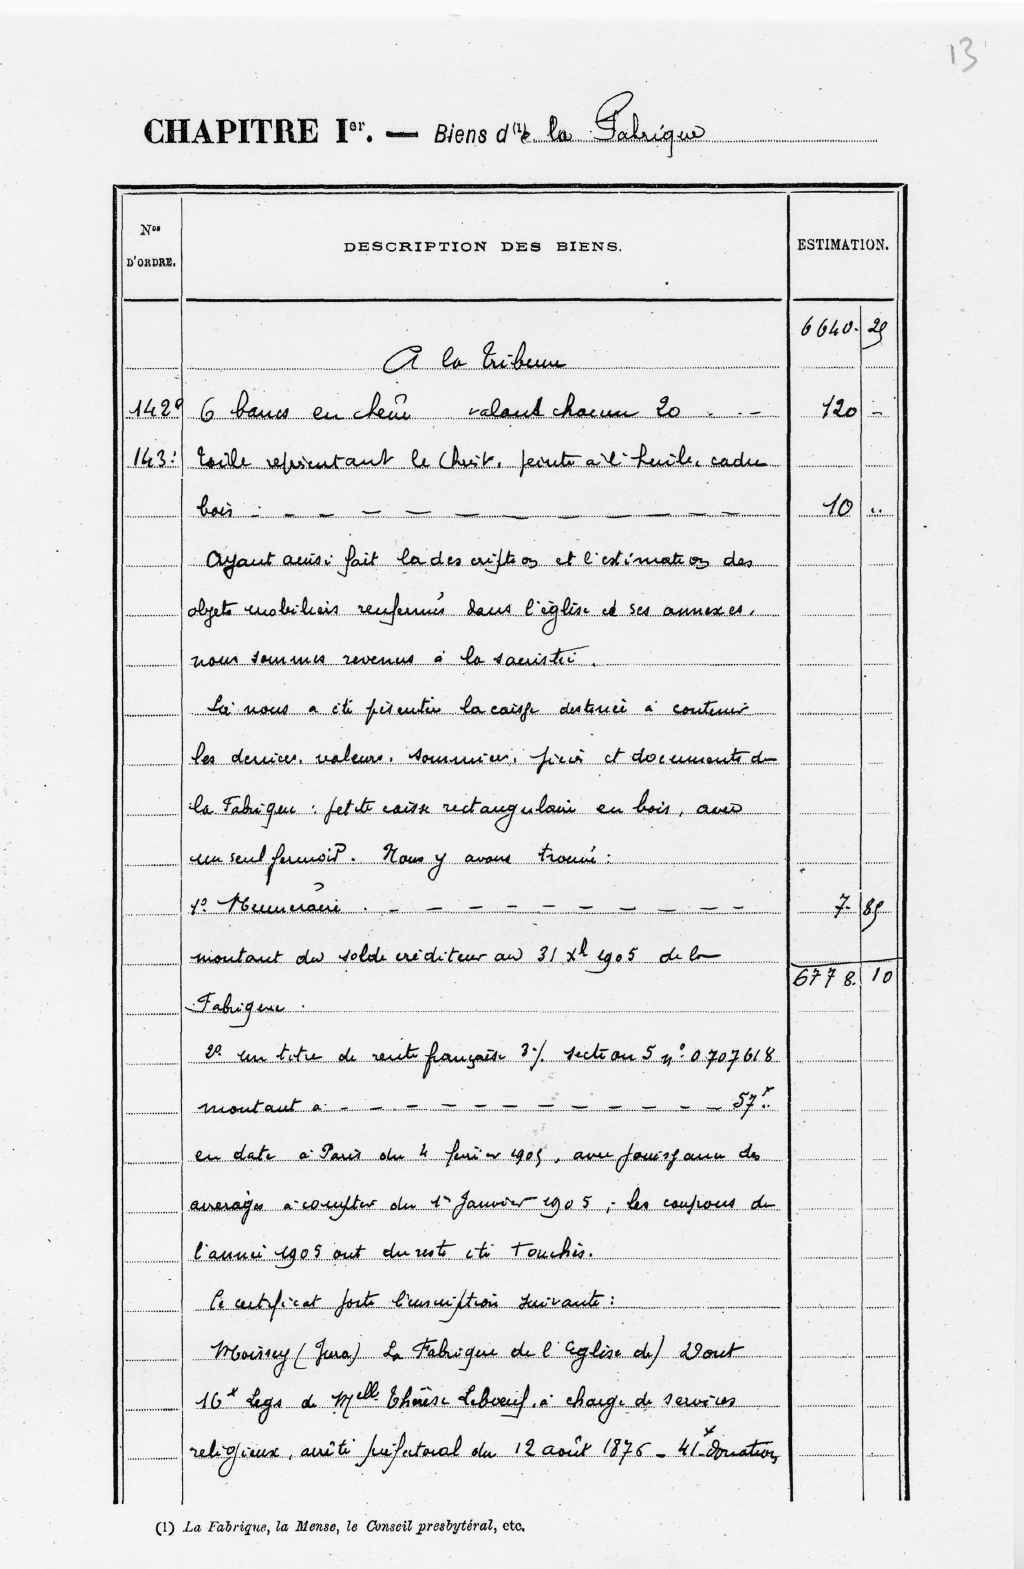 13
CHAPITRE Ier. — Biens d(1)e la Fabrique
Nos D'ORDRE. DESCRIPTION DES BIENS. ESTIMATION.
6640. 25
A la Tribune
142° 6 bancs en chêne valant chacun 20 . - - 120 -
143: Toile représentant le Christ, peinte à l'huile, cadre
bois - - - - - - - - - - 10 ..
Ayant ainsi fait la description et l'estimation des
objets mobiliers renfermés dans l'église et ses annexes,
nous sommes revenus à la sacristie.
Là nous a été présentée la caisse destinée à contenir
les deniers, valeurs, sommiers, pièces et documents de
la Fabrique : petite caisse rectangulaire en bois, avec
un seul fermoir. Nous y avons trouvé :
1° Numéraire . - - - - - - - - - - 7. 85
montant du solde créditeur au 31 Xbre 1905 de la
6778. 10
Fabrique .
2° un titre de rente française 3% section 5 n° 0707618
montant à - - - - - - - - - - - - 57f..
en date à Paris du 4 février 1905, avec jouissance des
arrérages à compter du 1er Janvier 1905 ; les coupons de
l'année 1905 ont du reste été touchés.
Ce certificat porte l'inscription suivante :
Moissey (Jura) La Fabrique de l'Eglise de) Dont
16f Legs de Melle Thérèse Leboeuf, à charge de services
religieux, arrêté préfectoral du 12 août 1876 - 41f donation
(1) La Fabrique, la Mense, le Conseil presbytéral, etc.